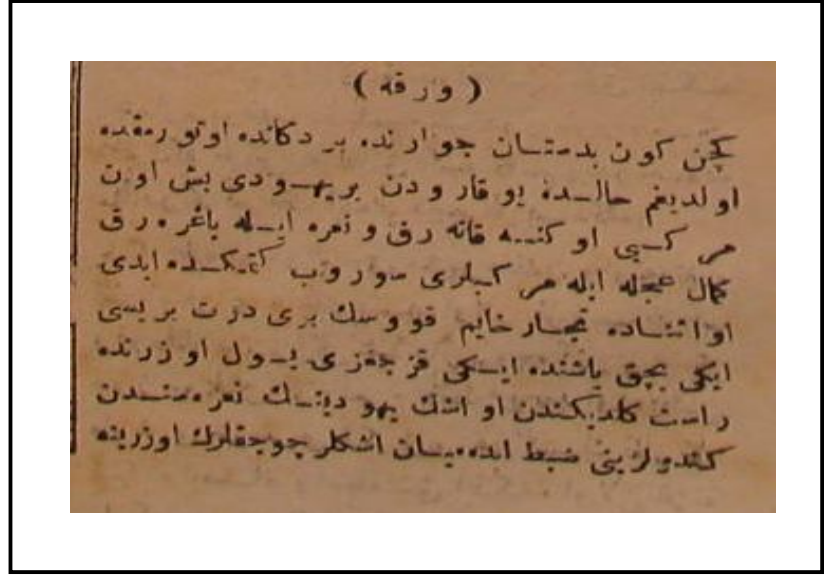 ( ورقه )
كچن كون بدستان جوارنده بر دكانده اوتورمقده
اولديغم حالده يوقارودن بر يهودى بش اون
مركبى اوكنه قاته رق و نعره ايله باغره رق
كمال عجله ايله مركبلرى سوروب كتمكده ايدى
او اثناده نجار خايم قووسك برى درت بريسى
ايكى بچق ياشنده ايكى قزجغزى يول اوزرنده
راست كلديكندن او اشك يهودينك نعره سندن
كندولرينى ضبط ايده ميان اشكلر چوجقلرك اوزرينه